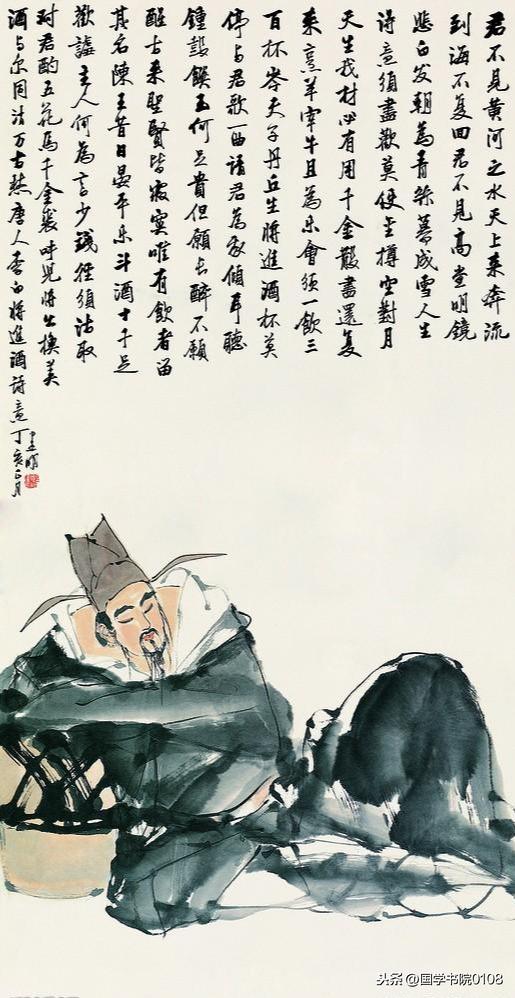 君不見黄河之水天上来奔流
到海不复回君不見高堂明鏡
悲白发朝為青丝暮成雪人生
詩意須盡歡莫使金樽空對月
天生我材必有用千金散盡還复
来烹羊宰牛且為乐會須一飲三
百杯岑夫子丹丘生将進酒杯莫
停与君歌一曲请君為我倾耳聽
鍾鼓饌玉何足貴但願长醉不願
醒古来聖賢皆寂寞唯有飲者留
其名陳王昔日宴平乐斗酒十千足
歡謔主人何為言少錢径須沽取
对君酌五花馬千金裘呼児将出換美
酒与尔同沽万古愁唐人李白将進酒詩意丁亥正月
头条 @国学书院0108